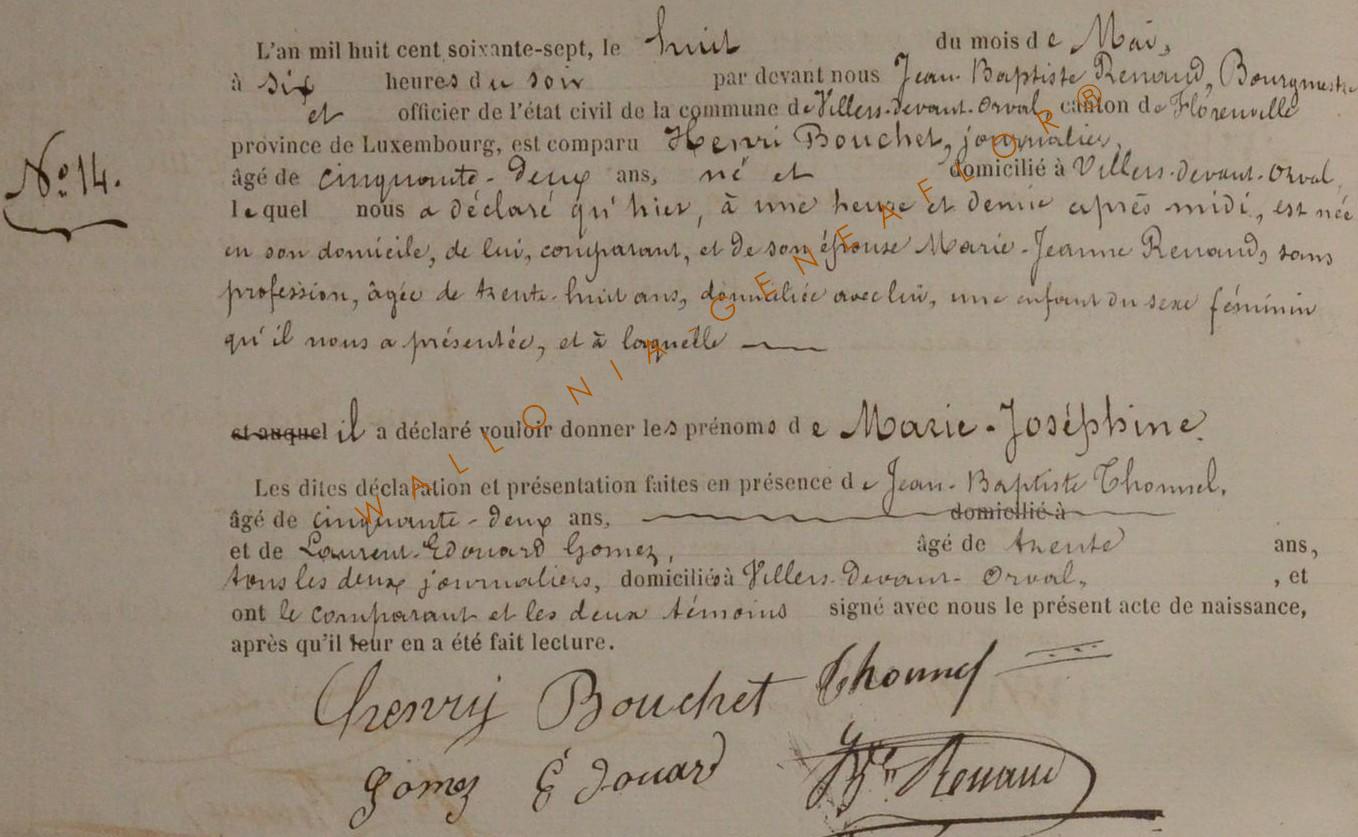 L'an mil huit cent soixante-sept, le huit du mois de Mai,
à six heures du soir par devant nous Jean-Baptiste Renaud, Bourgmestre
et officier de l'état civil de la commune de Villers-devant-Orval, canton de Florenville
province de Luxembourg, est comparu Henri Bouchet, journalier,
N° 14.
âgé de cinquante-deux ans, né et domicilié à Villers-devant-Orval,
lequel nous a déclaré qu'hier, à une heure et demie après midi, est née
en son domicile, de lui, comparant, et de son épouse Marie-Jeanne Renaud, sans
profession, âgée de trente-huit ans, domiciliée avec lui, une enfant du sexe féminin
qu'il nous a présentée, et à laquelle
et auquel il a déclaré vouloir donner les prénoms de Marie-Joséphine.
Les dites déclaration et présentation faites en présence de Jean-Baptiste Thonnel,
âgé de cinquante-deux ans, domicilié à
et de Laurent-Edouard Gomez, âgé de trente ans,
tous les deux journaliers, domiciliés à Villers-devant-Orval, , et
ont le comparant et les deux témoins signé avec nous le présent acte de naissance,
après qu'il leur en a été fait lecture.
Chenrij Bouchet Thonnel
Gomez Édouard Renaud
WALLONIA-GENEAFLOR®